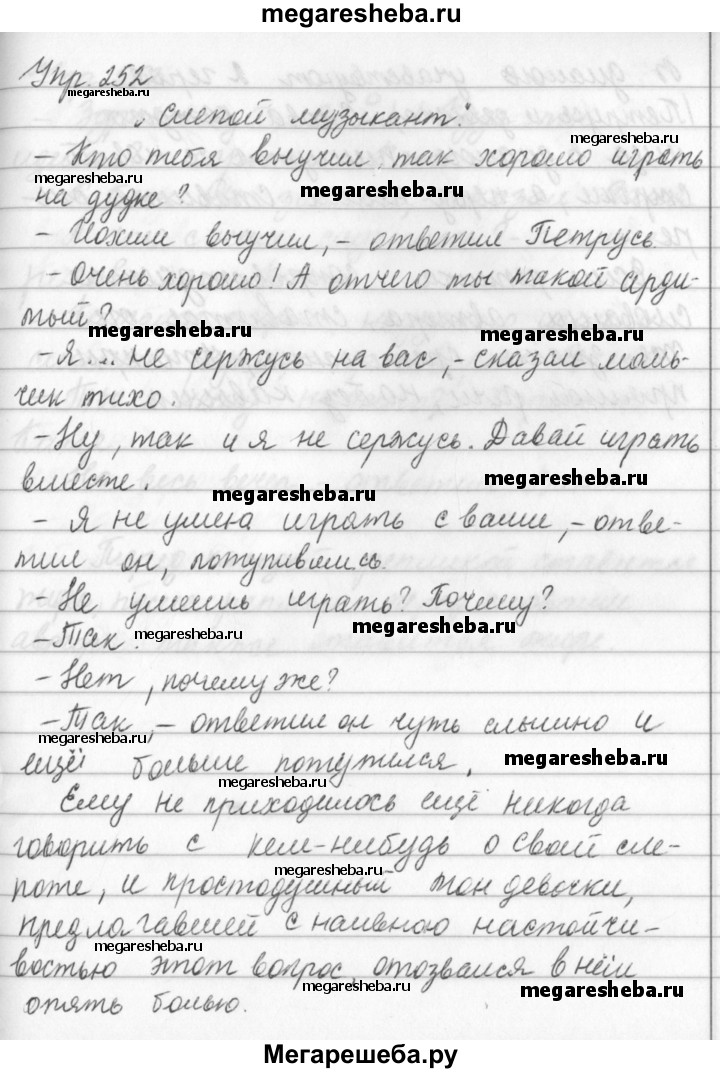 megaresheba.ru
Упр. 252
megaresheba.ru
„Слепой музыкант".
megaresheba.ru
– Кто тебя выучил так хорошо играть
megaresheba.ru
на дудке?
megaresheba.ru
– Иохим выучил, – ответил Петрусь.
– Очень хорошо! А отчего ты такой
тый?
megaresheba.ru
megaresheba.ru
– Я... не сержусь на вас, – сказал маль-
чик тихо.
– Ну, так и я не сержусь. Давай играть
вместе.
megaresheba.ru
megaresheba.ru
– Я не умею играть с вами, – отве-
тил он, потупившись.
– Не умеешь играть? Почему?
– Так.
megaresheba.ru
megaresheba.ru
– Нет, почему же?
– Так, – ответил он чуть слышно и
megaresheba.ru
ещё больше потупился.
megaresheba.ru
megaresheba.ru
Ему не приходилось ещё никогда
говорить с кем-нибудь о своей сле-
megaresheba.ru
поте, и простодушный тон девочки,
предлагавшей с наивною настойчи-
megaresheba.ru
востью этот вопрос, отозвался в нём
megaresheba.ru
megaresheba.ru
опять болью.
Мегарешеба.ру